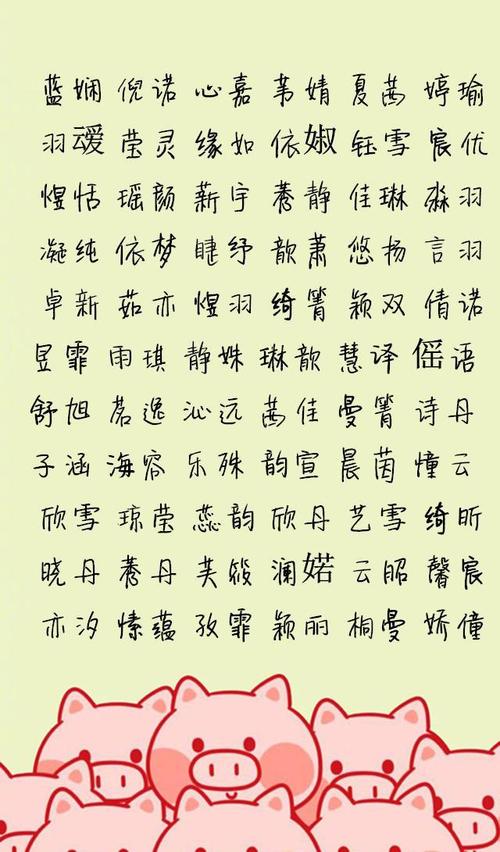 蓝娴 倪诺 心嘉 苇婧 夏茜 婷瑜
羽叆 莹灵 缘如 依婌 钰雪 宸优
煜恬 瑶颜 薪宇 蕎静 佳琳 淼羽
凝纯 依梦 睫纾 歆萧 悠扬 言羽
卓新 茹亦 煜羽 绮箐 颖双 倩诺
昱霏 雨琪 静姝 琳歆 慧译 傜语
舒旭 茗逸 沁远 茜佳 曼箐 诗丹
子涵 海容 乐殊 韵宣 晨茵 憧云
欣雪 琼莹 蕊韵 欣丹 艺雪 绮昕
晓丹 蕎丹 芙筱 澜婼 云昭 馨宸
亦汐 愫蕴 孜霏 颖丽 桐曼 娇僮